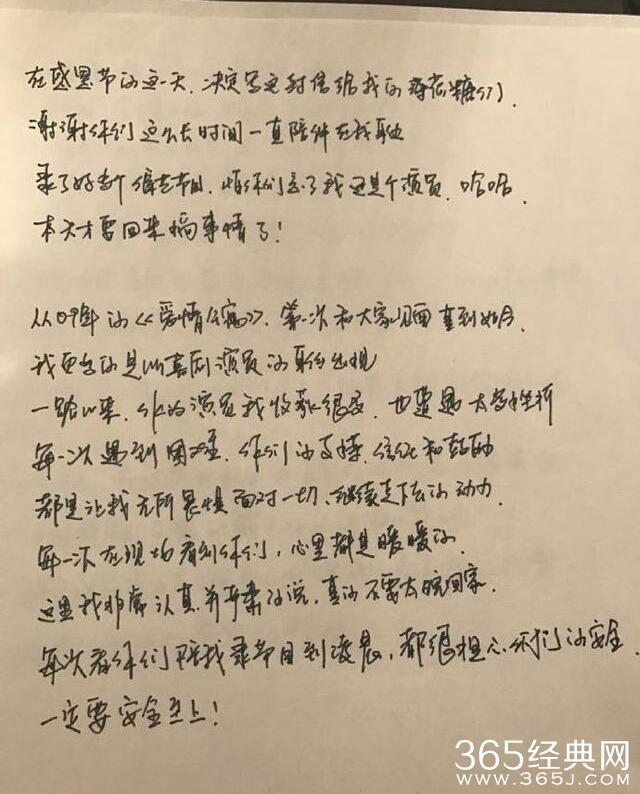 在感恩节的这一天,决定写这封信给我的薄荷糖们).
谢谢你们这么长时间一直陪伴在我身边
录了好多个综艺节目,怕你们忘了我还是个演员,哈哈,
本天才要回来搞事情了!
从09年的《爱情公寓》,第一次和大家见面直到如今,
我更多的是以喜剧演员的身份出现
一路以来,作为演员我收获很多,也遭遇太多挫折
每一次遇到困难,你们的支持、信任和鼓励
都是让我无所畏惧面对一切、继续走下去的动力.
每一次在现场看到你们,心里都是暖暖的,
这里我非常认真并严肃的说,真的不要太晚回家,
每次看你们陪我录节目到凌晨,都很担心你们的安全.
一定要安全至上!
365经典网
WWW.365J.COM